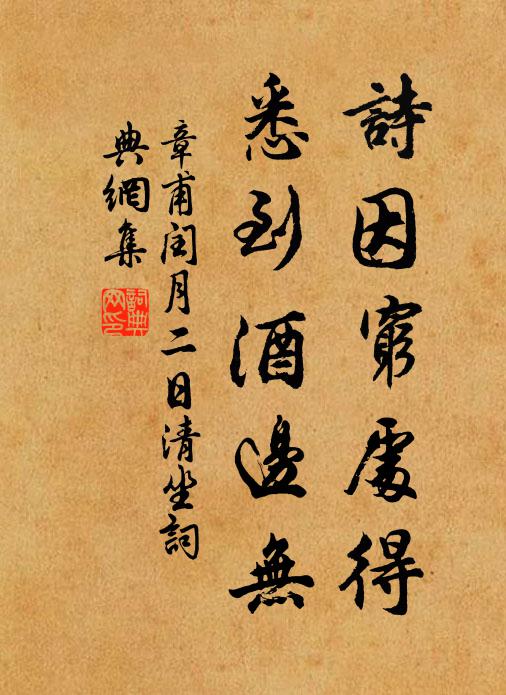 詩因窮處得
悉到酒邊無
章甫閏月二日清坐詞
典網集
詞典
网印